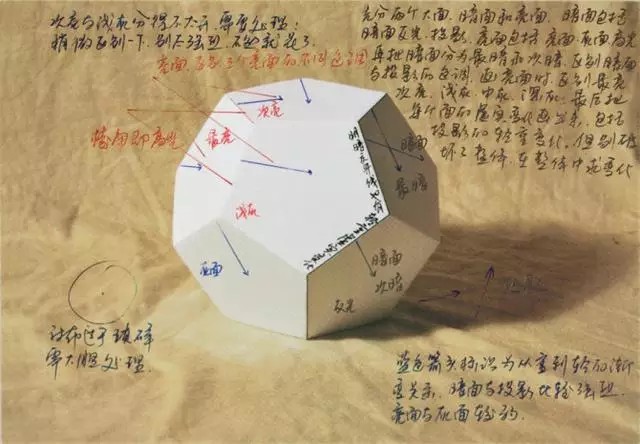 次亮与浅灰分得不太开,需要处理:
稍微区别一下,别太强烈,不然就花了
亮面,区别三个亮面的不同色调
先分两个大面,暗面和亮面,暗面包括
暗面反光,投影,亮面包括亮面,灰面,高光
再把暗面分为最暗和次暗,区别暗面
与投影的色调,画亮面时,区别最亮
次亮,浅灰,中灰,深灰,最后把
每个面的虚实变化画出来,包括
投影的轻重变化。但别破
坏了整体,在整体中求变化
次亮
棱角即高光
最亮
浅灰
明暗交界线
暗面
最暗
灰面
暗面
次暗
反光
衬布过于琐碎
需大胆处理
蓝色箭头标识为从重到轻的渐
变关系,暗面与投影比较强烈
亮面与灰面较弱。